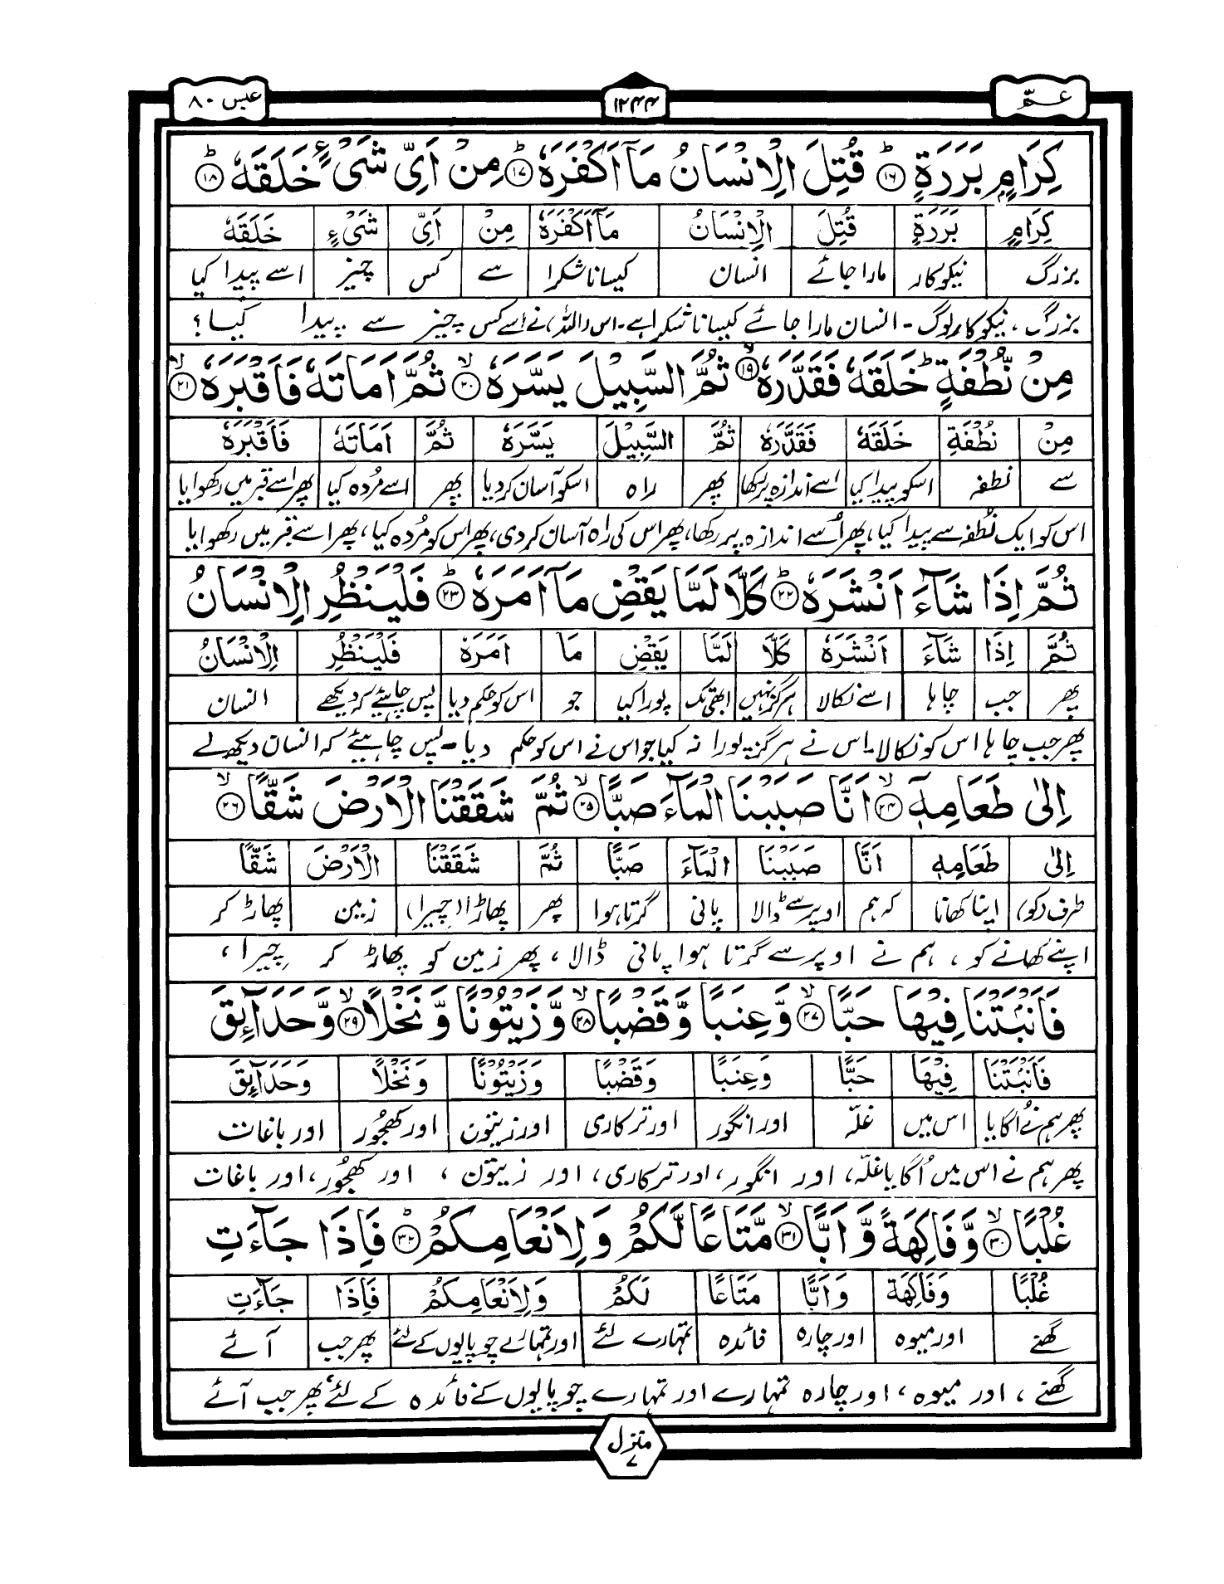 عـمّ
١٢٤٤
عبس ٨٠
كِرَامٍۭ بَرَرَةٍ ؕ﴿١٦﴾ قُتِلَ الْاِنْسَانُ مَاۤ اَكْفَرَهٗ ؕ﴿١٧﴾ مِنْ اَیِّ شَیْءٍ خَلَقَهٗ ؕ﴿١٨﴾
كِرَامٍ بَرَرَةٍ قُتِلَ الْاِنْسَانُ مَاۤ اَكْفَرَهٗ مِنْ اَیِّ شَیْءٍ خَلَقَهٗ
بزرگ نیکوکار مارا جائے انسان کیسا ناشکرا سے کس چیز اسے پیدا کیا
بزرگ، نیکو کار لوگ۔ انسان مارا جائے کیسا ناشکرا ہے۔ اس (اللہ) نے اسے کس چیز سے پیدا کیا؟
مِنْ نُّطْفَةٍ ؕ خَلَقَهٗ فَقَدَّرَهٗ ۙ﴿١٩﴾ ثُمَّ السَّبِیْلَ یَسَّرَهٗ ۙ﴿٢٠﴾ ثُمَّ اَمَاتَهٗ فَاَقْبَرَهٗ ۙ﴿٢١﴾
مِنْ نُطْفَةٍ خَلَقَهٗ فَقَدَّرَهٗ ثُمَّ السَّبِیْلَ یَسَّرَهٗ ثُمَّ اَمَاتَهٗ فَاَقْبَرَهٗ
سے نطفہ اسکو پیدا کیا اسے اندازہ پر رکھا پھر راہ اسکو آسان کر دیا پھر اسے مُردہ کیا پھر اسے قبر میں رکھوایا
اس کو ایک نُطفہ سے پیدا کیا، پھر اُسے اندازہ پر رکھا، پھر اس کی راہ آسان کر دی، پھر اس کو مُردہ کیا، پھر اسے قبر میں رکھوایا
ثُمَّ اِذَا شَآءَ اَنْشَرَهٗ ؕ﴿٢٢﴾ كَلَّا لَمَّا یَقْضِ مَاۤ اَمَرَهٗ ؕ﴿٢٣﴾ فَلْیَنْظُرِ الْاِنْسَانُ
ثُمَّ اِذَا شَآءَ اَنْشَرَهٗ كَلَّا لَمَّا یَقْضِ مَا اَمَرَهٗ فَلْیَنْظُرِ الْاِنْسَانُ
پھر جب چاہا اسے نکالا ہرگز نہیں ابھی تک پورا کیا جو اس کو حکم دیا پس چاہیئے کہ دیکھے انسان
پھر جب چاہا اس کو نکالا۔ اس نے ہرگز پورا نہ کیا جو اس نے اس کو حکم دیا۔ پس چاہیئے کہ انسان دیکھ لے
اِلٰی طَعَامِهٖۤ ۙ﴿٢٤﴾ اَنَّا صَبَبْنَا الْمَآءَ صَبًّا ۙ﴿٢٥﴾ ثُمَّ شَقَقْنَا الْاَرْضَ شَقًّا ۙ﴿٢٦﴾
اِلٰی طَعَامِهٖ اَنَّا صَبَبْنَا الْمَآءَ صَبًّا ثُمَّ شَقَقْنَا الْاَرْضَ شَقًّا
طرف (کو) اپنا کھانا کہ ہم اوپر سے ڈالا پانی گرتا ہوا پھر پھاڑا (چیرا) زمین پھاڑ کر
اپنے کھانے کو، ہم نے اوپر سے گرتا ہوا پانی ڈالا، پھر زمین کو پھاڑ کر چیرا،
فَاَنْۢبَتْنَا فِیْهَا حَبًّا ۙ﴿٢٧﴾ وَّعِنَبًا وَّقَضْبًا ۙ﴿٢٨﴾ وَّزَیْتُوْنًا وَّنَخْلًا ۙ﴿٢٩﴾ وَّحَدَآئِقَ
فَاَنْۢبَتْنَا فِیْهَا حَبًّا وَعِنَبًا وَقَضْبًا وَزَیْتُوْنًا وَنَخْلًا وَحَدَآئِقَ
پھر ہم نے اُگایا اس میں غلّہ اور انگور اور ترکاری اور زیتون اور کھجور اور باغات
پھر ہم نے اس میں اُگایا غلّہ، اور انگور، اور ترکاری، اور زیتون، اور کھجُور، اور باغات
غُلْبًا ۙ﴿٣٠﴾ وَّفَاكِهَةً وَّاَبًّا ۙ﴿٣١﴾ مَّتَاعًا لَّكُمْ وَلِاَنْعَامِكُمْ ؕ﴿٣٢﴾ فَاِذَا جَآءَتِ
غُلْبًا وَفَاكِهَةً وَاَبًّا مَتَاعًا لَكُمْ وَلِاَنْعَامِكُمْ فَاِذَا جَآءَتِ
گھنے اور میوہ اور چارہ فائدہ تمہارے لئے اور تمہارے چوپایوں کے لئے پھر جب آئے
گھنے، اور میوہ، اور چارہ تمہارے اور تمہارے چوپایوں کے فائدہ کے لئے، پھر جب آئے
منزل ٧